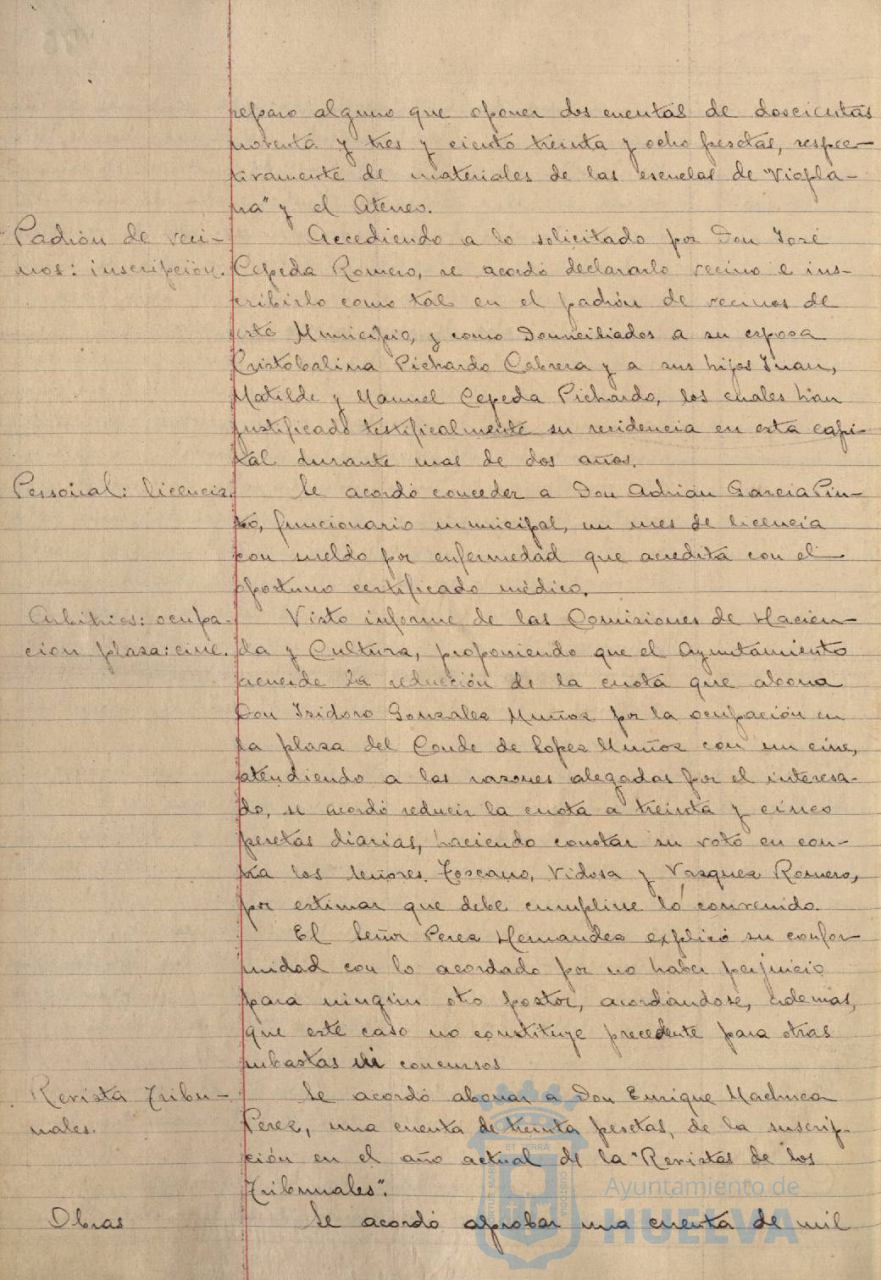 reparo alguno que oponer dos cuentas de doscientas
noventa y tres y ciento treinta y ocho pesetas, respec-
tivamente de materiales de las escuelas de "Viapla-
na" y el Ateneo.
Padrón de veci-
nos: inscripción.
Accediendo a lo solicitado por Don José
Cepeda Romero, se acordó declararlo vecino e ins-
cribirlo como tal en el padrón de vecinos de
este Municipio, y como Domiciliados a su esposa
Cristobalina Pichardo Cabrera y a sus hijos Juan,
Matilde y Manuel Cepeda Pichardo, los cuales han
justificado testificalmente su residencia en esta capi-
tal durante mas de dos años.
Personal: licencia.
Se acordó conceder a Don Adrián García Pin-
to, funcionario municipal, un mes de licencia
con sueldo por enfermedad que acredita con el
oportuno certificado médico.
Arbitrios: ocupa-
ción plaza: cine.
Visto informe de las Comisiones de Hacien-
da y Cultura, proponiendo que el Ayuntamiento
acuerde la reducción de la cuota que abona
Don Isidoro Gonzalez Muñoz por la ocupación en
la plaza del Conde de Lopez Muñoz con un cine,
atendiendo a las razones alegadas por el interesa-
do, se acordó reducir la cuota a treinta y cinco
pesetas diarias, haciendo constar su voto en con-
tra los señores Toscano, Vidosa y Vazquez Romero,
por estimar que debe cumplirse lo convenido.
El Señor Perez Hernandez explicó su confor-
midad con lo acordado por no haber perjuicio
para ningún otro postor, acordándose, además,
que este caso no constituye precedente para otras
subastas ni concursos
Revista Tribu-
nales.
Se acordó abonar a Don Enrique Machuca
Perez, una cuenta de treinta pesetas, de la suscrip-
ción en el año actual de la "Revistas de los
Tribunales".
Obras
Se acordó aprobar una cuenta de mil
Ayuntamiento de
HUELVA